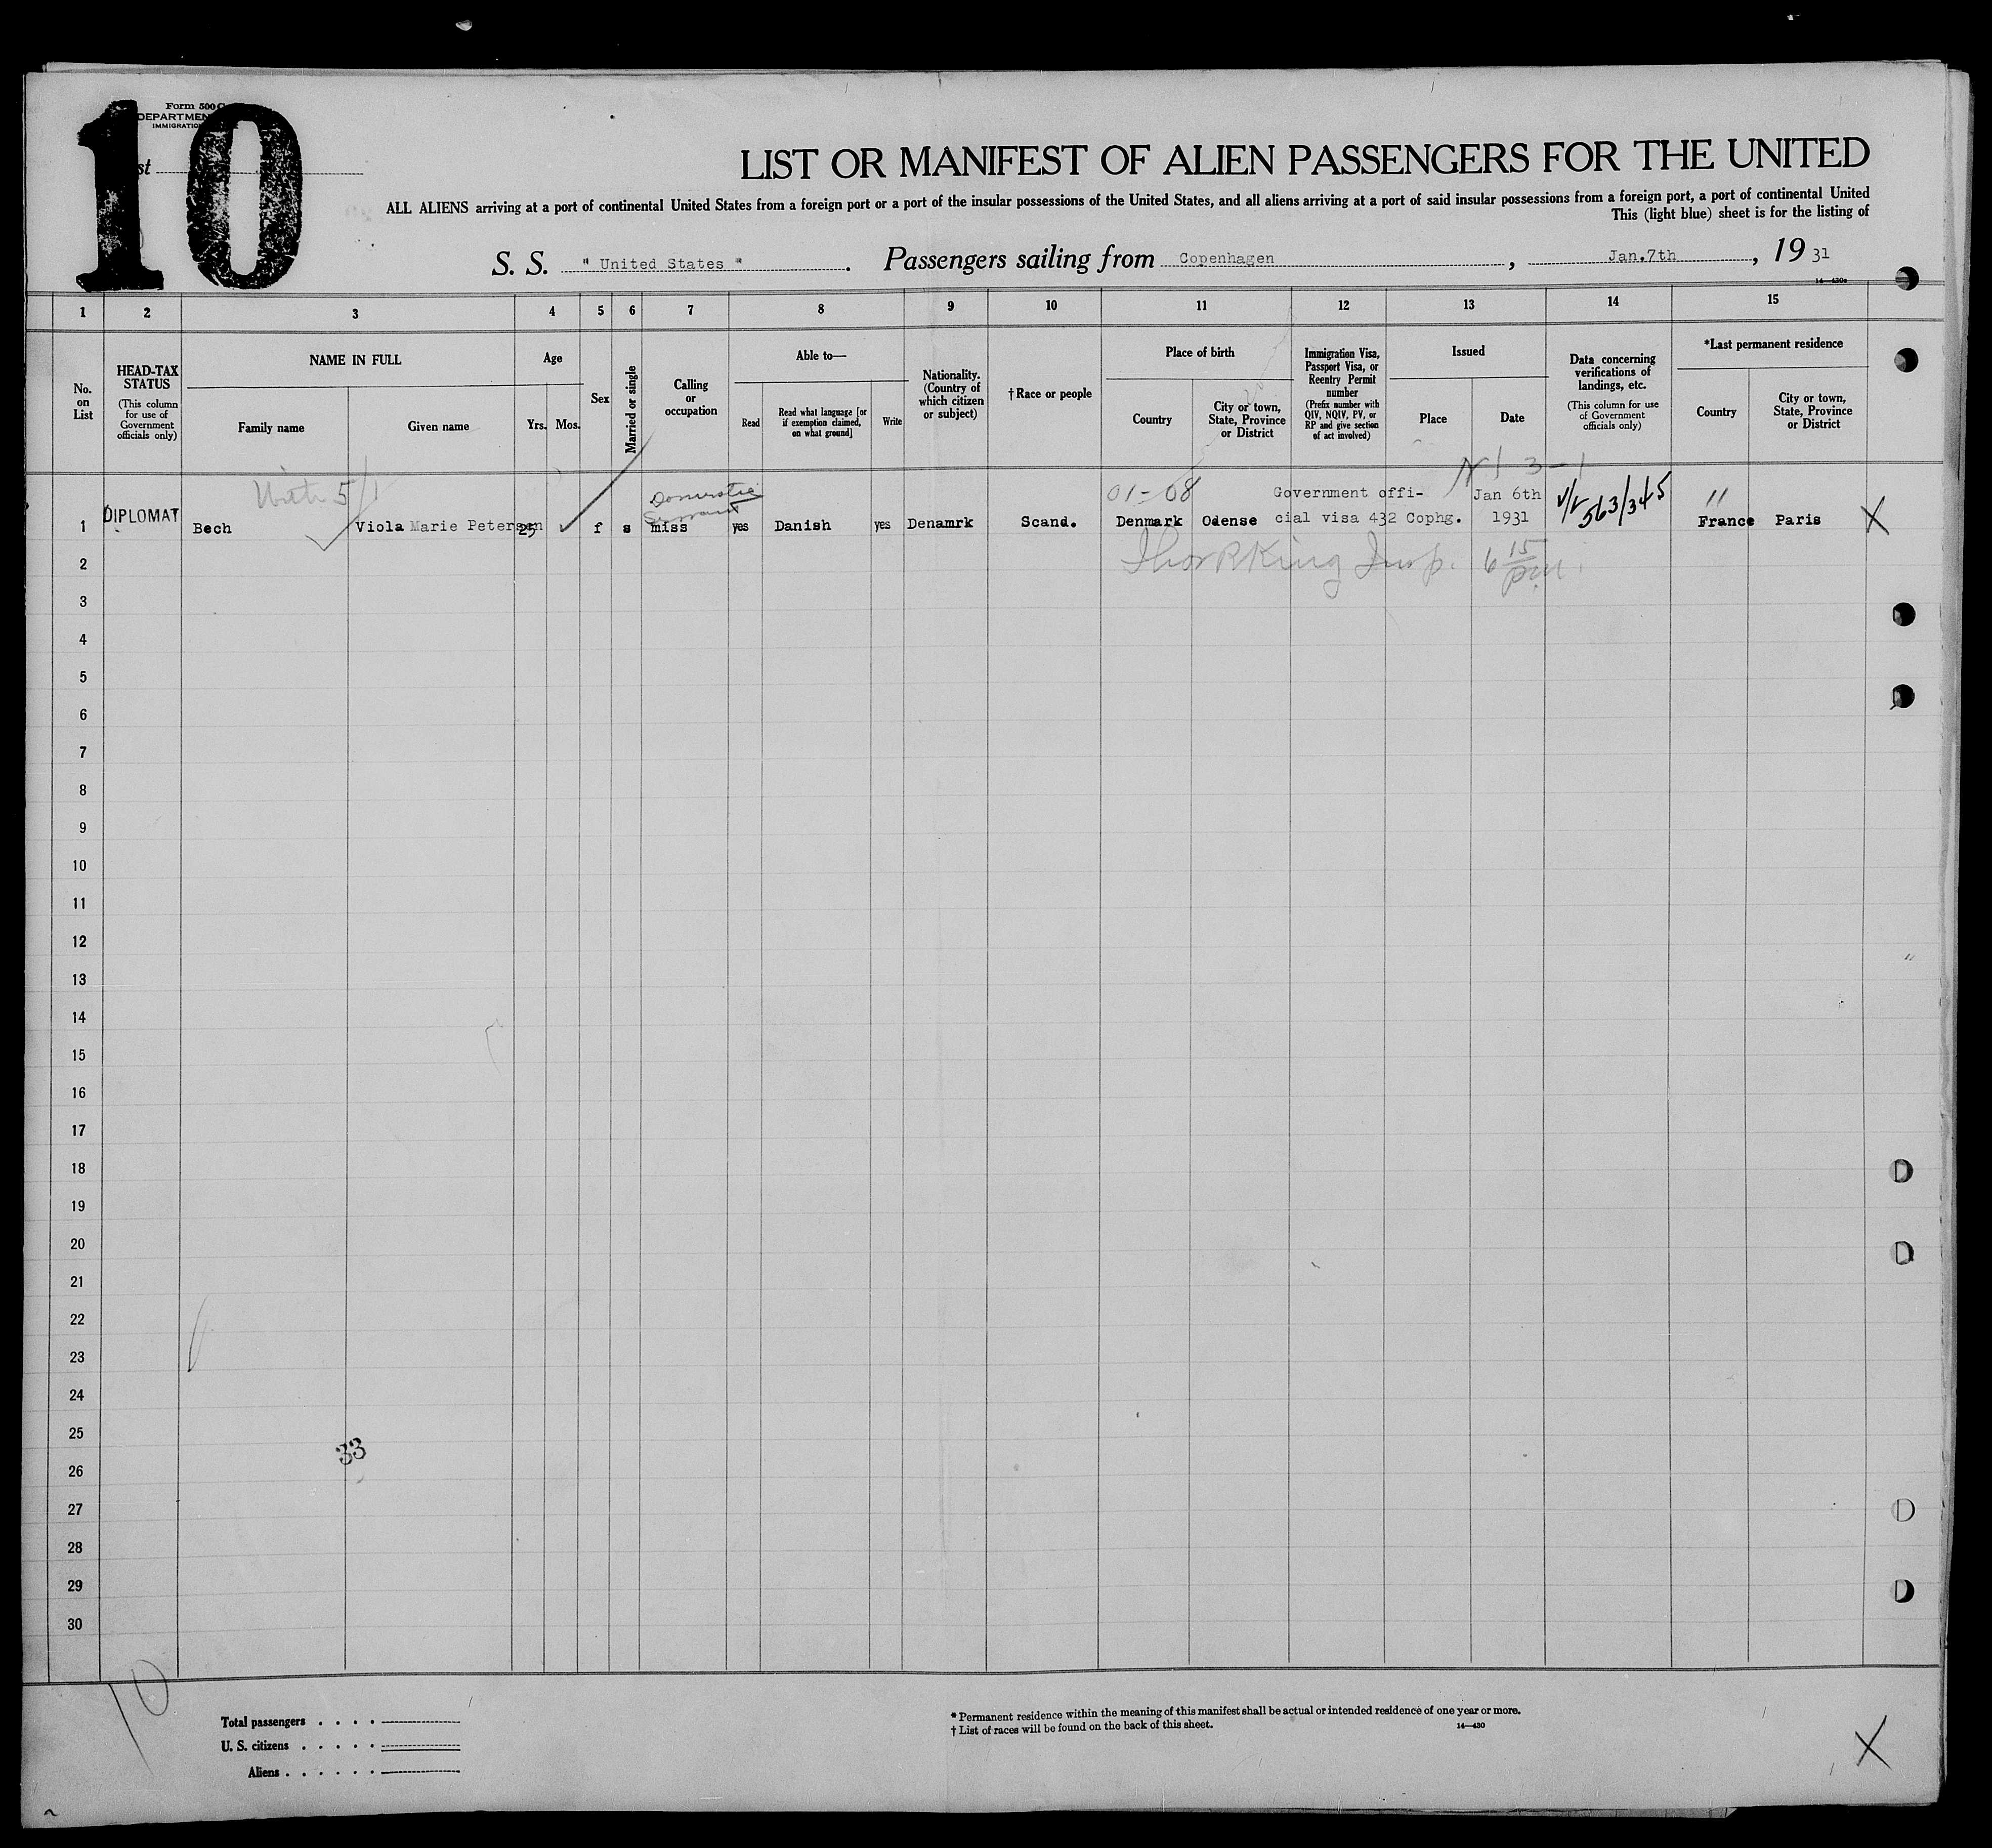 10
Form 500
DEPARTMEN
IMMIGRATIO
st
LIST OR MANIFEST OF ALIEN PASSENGERS FOR THE UNITED
ALL ALIENS arriving at a port of continental United States from a foreign port or a port of the insular possessions of the United States, and all aliens arriving at a port of said insular possessions from a foreign port, a port of continental United
This (light blue) sheet is for the listing of
S. S. " United States " . Passengers sailing from Copenhagen , Jan.7th , 19 31
1 2 3 4 5 6 7 8 9 10 11 12 13 14 15
No. on List
HEAD-TAX STATUS (This column for use of Government officials only)
NAME IN FULL
Family name Given name
Age
Yrs. Mos.
Sex
Married or single
Calling or occupation
Able to—
Read Read what language [or if exemption claimed, on what ground] Write
Nationality. (Country of which citizen or subject)
†Race or people
Place of birth
Country City or town, State, Province or District
Immigration Visa, Passport Visa, or Reentry Permit number (Prefix number with QIV, NQIV, PV, or RP and give section of act involved)
Issued
Place Date
Data concerning verifications of landings, etc. (This column for use of Government officials only)
*Last permanent residence
Country City or town, State, Province or District
With 5/1 Domestic 01-08 Government offi- Jan 6th
Servant
1 DIPLOMAT Bech Viola Marie Petersen 25 f s miss yes Danish yes Denamrk Scand. Denmark Odense cial visa 432 Cophg. 1931 563/345 France Paris X
2 King Insp. 6 15 pm.
3
4
5
6
7
8
9
10
11
12
13
14
15
16
17
18
19
20
21
22
23
24
25
33
26
27
28
29
30
10
Total passengers
U. S. citizens
Aliens
* Permanent residence within the meaning of this manifest shall be actual or intended residence of one year or more.
† List of races will be found on the back of this sheet.
14—430
X